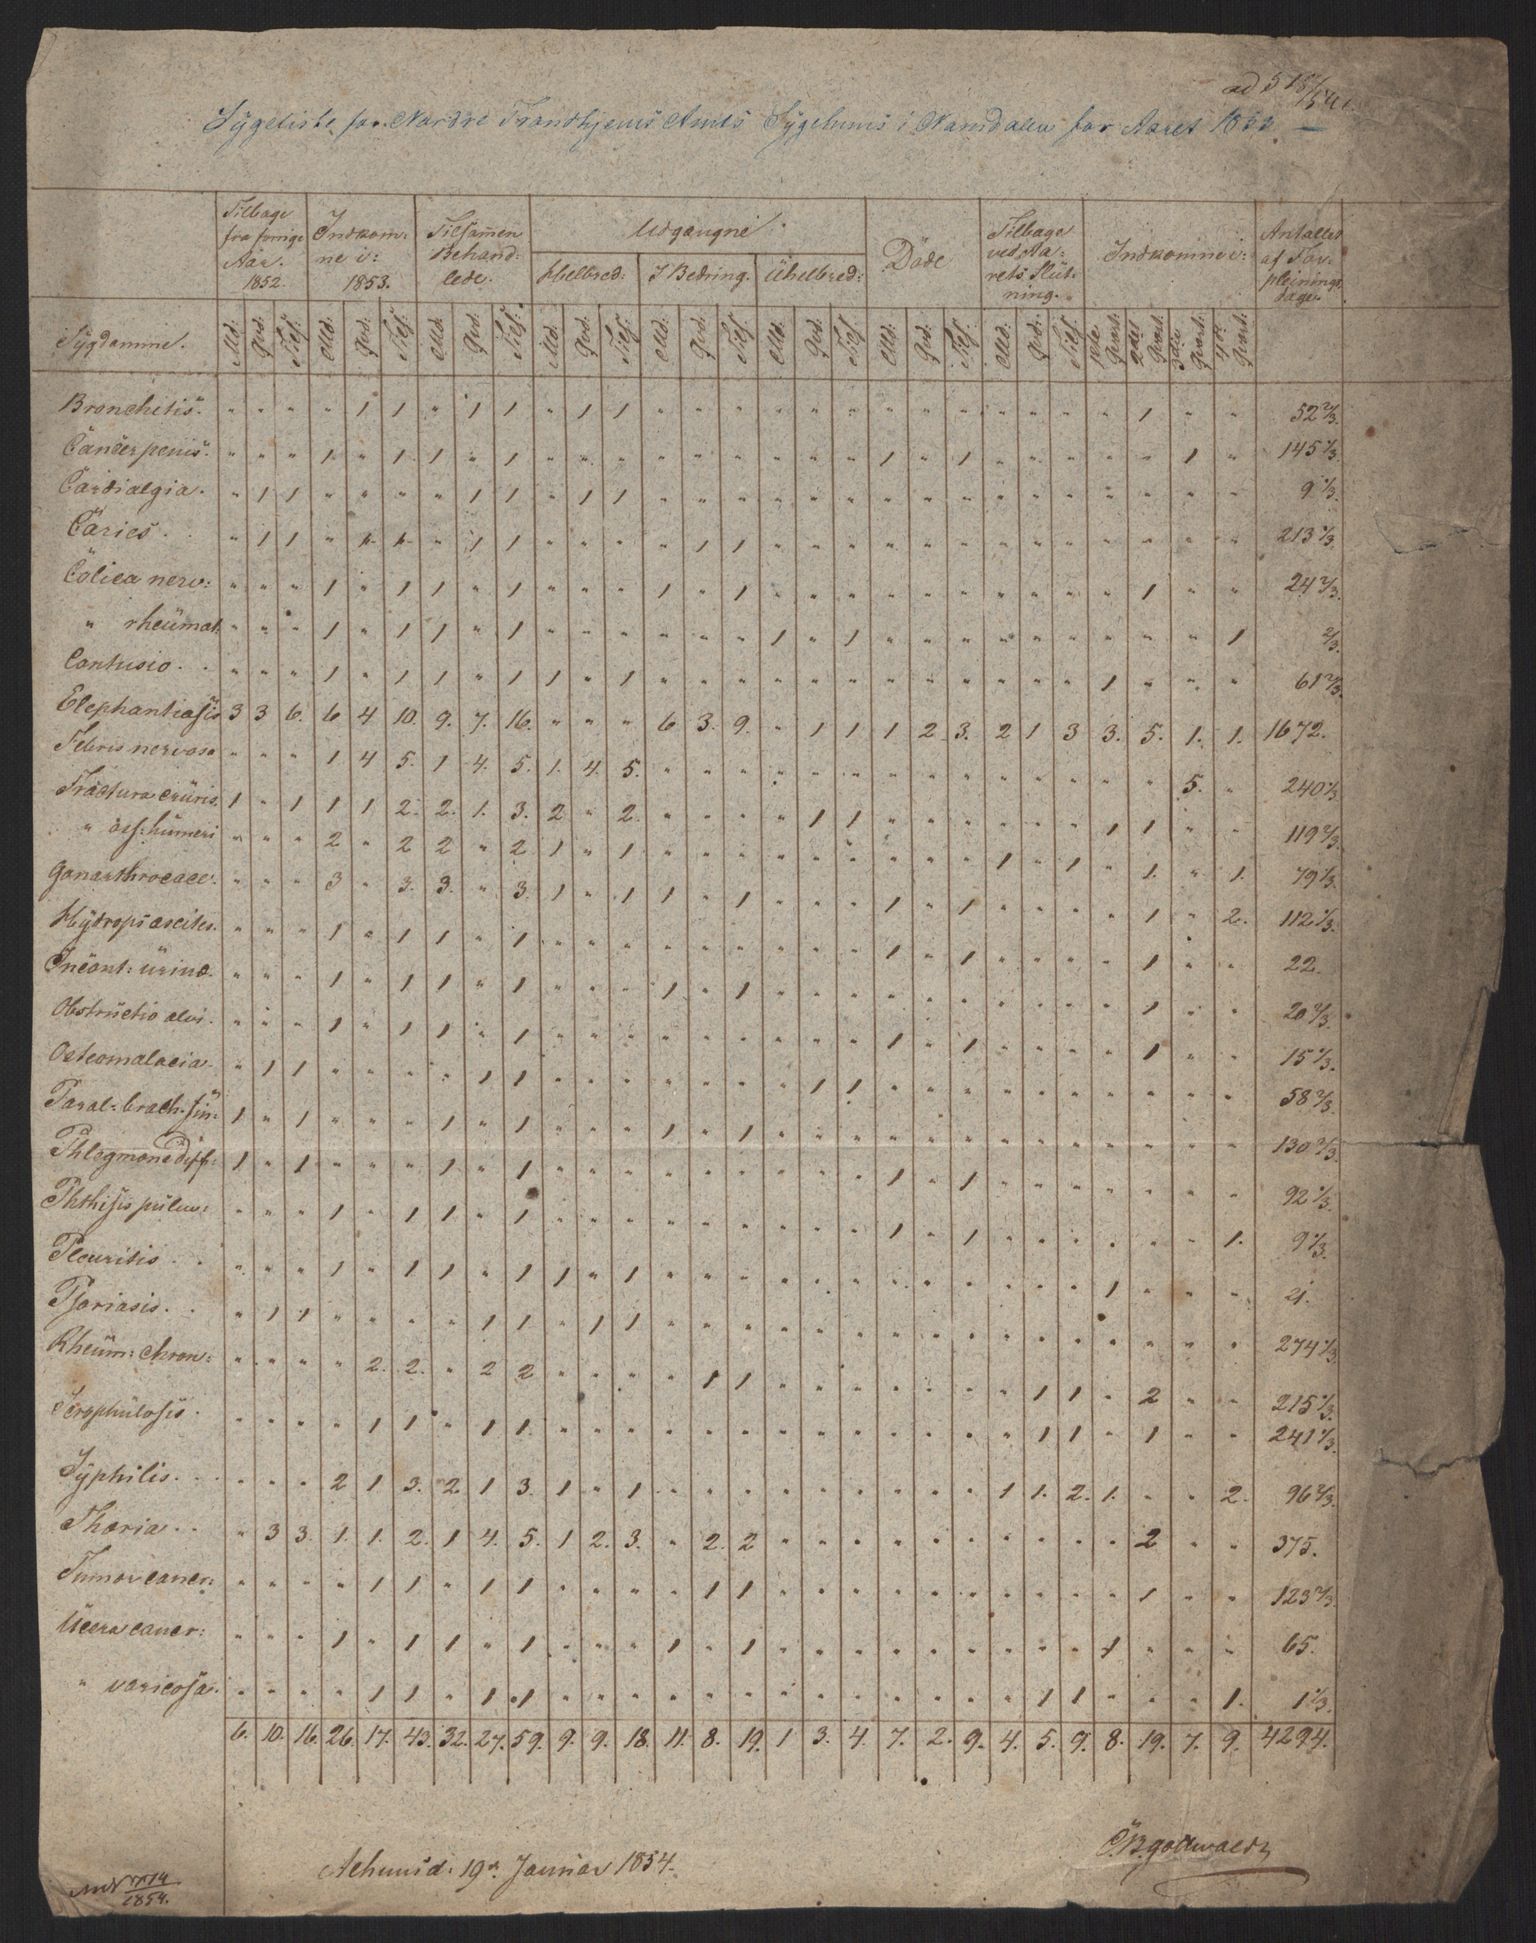 ad 518/54
Sygeliste for Nordre Trondhjems Amts Sygehuus i Namdalen for Aaret 1853
Tilbage fra forrige Aar. 1852. | Indkomne i: 1853. | Tilsamen Behandlede. | Udgangne: | Döde | Tilbage ved Aarets Slutning. | Indkomne i: | Antallet af Forpleinings dage.
Helbred: | I Bedring. | Uhelbred:
Sygdomme. | Md. | Qvd. | Tils. | Md. | Qvd. | Tils. | Md. | Qvd. | Tils. | Md. | Qvd. | Tils. | Md. | Qvd. | Tils. | Md. | Qvd. | Tils. | Md. | Qvd. | Tils. | Md. | Qvd. | Tils. | 1ste Qvart. | 2det Qvart. | 3die Qvart. | 4de Qvart.
Bronchitis. " " " " 1 1 " 1 1 " 1 1 " " " " " " " " " " " " " 1 " " 52 2/3.
Cancer penis. " " " 1 " 1 1 " 1 " " " " " " " " " 1 " 1 " " " " " 1 " 145 1/3.
Cardialgia. " 1 1 " " " " 1 1 " 1 1 " " " " " " " " " " " " " " " " 9 1/3.
Caries. " 1 1 " " " " 1 1 " " " " 1 1 " " " " " " " " " " " " " 213 1/3.
Colica nerv: " " " 1 " 1 1 " 1 " " " 1 " 1 " " " " " " " " " " 1 " " 24 2/3.
" rheumat. " " " 1 " 1 1 " 1 " " " " " " 1 " 1 " " " " " " " " " 1 2/3.
Contusio. " " " 1 " 1 1 " 1 1 " 1 " " " " " " " " " " " " 1 " " " 61 2/3.
Elephantiasis 3 3 6. 6 4 10. 9. 7. 16. " " " 6 3. 9. " 1 1 1 2 3. 2 1 3 3. 5. 1. 1. 1672.
Febris nervosa " " " 1 4 5. 1 4. 5. 1. 4. 5. " " " " " " " " " " " " " " 5. " 240 1/3
Fractura cruris. 1 " 1 1 1 2. 2. 1. 3. 2 " 2. " " " " 1 1 " " " " " " 1 1 " " 119 2/3.
" oss: humeri " " " 2 " 2 2 " 2 1 " 1 " " " " " " " " " 1 " 1 " 1. " 1. 79 1/3.
Gonarthrocace. " " " 3 " 3. 3. " 3. 1 " 1 1 " 1 " " " 1 " 1 " " " " 1 " 2. 112 1/3.
Hydrops ascites. " " " 1 " 1 1 " 1 " " " " " " " " " 1 " 1 " " " " 1 " " 22.
Incont: urinæ. " " " 1 " 1 1 " 1 " " " 1 " 1 " " " " " " " " " " 1 " " 20 2/3.
Obstructio alvi. " " " 1 " 1 1 " 1 " " " " " " " " " 1 " 1 " " " " 1 " " 15 1/3.
Osteomalacia. " 1 1 " " " " 1 1 " " " " " " " 1 1 " " " " " " " " " " 58 2/3.
Paral: brach: sin: 1 " 1 " " " 1 " 1 " " " 1 " 1 " " " " " " " " " " " " " 130 2/3.
Phlegmone diff: 1 " 1 " " " 1 " 1 " " " " " " " " " 1 " 1 " " " " " " " 92 1/3.
Phthisis pulm: " " " 1 " 1 1 " 1 " " " " " " " " " 1 " 1 " " " " " " 1. 9 1/3.
Pleuritis. " " " 1 " 1 1 " 1 1 " 1 " " " " " " " " " " " " 1 " " " 21.
Psoriasis. " 1 1 " " " " 1 1 " 1 1 " " " " " " " " " " " " " " " " 274 1/3
Rheum: chron: " " " " 2. 2. " 2 2 " " " " 1 1 " " " " " " " 1 1 " 2 " " 215 1/3.
Scrophulosis. " " " " 1 1 " 1 1 " " " " " " " " " " " " " 1 1 " 1 " " 241 1/3.
Syphilis. " " " 2 1 3. 2 1 3. 1 " 1 " " " " " " " " " 1 1. 2. 1. " " 2. 96 2/3.
Thoria. " 3 3. 1. 1. 2. 1 4. 5. 1 2. 3. " 2. 2 " " " " " " " " " " 2 " " 375.
Tumor cancr: " " " " 1 1 " 1 1 " " " " 1 1 " " " " " " " " " " 1 " " 123 2/3
Ulcera cancr: " " " 1 " 1 1 " 1 " " " 1 " 1 " " " " " " " " " 1 " " " 65.
" varicosa. " " " " 1 1 " 1 1 " " " " " " " " " " " " " 1 1 " " " 1. 1 1/3.
6. 10. 16. 26. 17. 43. 32. 27. 59. 9. 9. 18. 11. 8. 19. 1 3. 4. 7. 2. 9. 4. 5. 9. 8. 19. 7. 9. 4294.
19de Januar 1854.
1854.